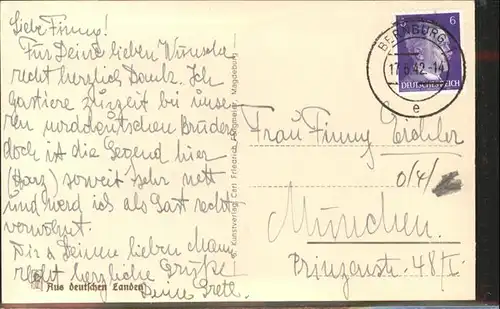 Liebe Finny!
Für Deine lieben Wünsche
recht herzlich Dank. Ich
gastiere zurzeit bei unse-
ren norddeutschen Brüder
doch ist die Gegend hier
(Harz) soweit sehr nett
und werd ich als Gast recht
verwöhnt.
Dir u Deinem lieben Mann
recht herzliche Grüße
Deine Gretl.
Aus deutschen Landen
Kunstverlag Carl Friedrich Magdeburg
BERNBURG
17.6.42-14
e
6
DEUTSCHES REICH
Frau Finny
0/4/
München
Prinzenstr. 48/I.